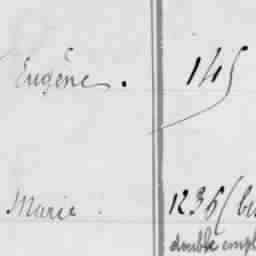 Eugène. 145
Marie. 1236 (bis
double empl